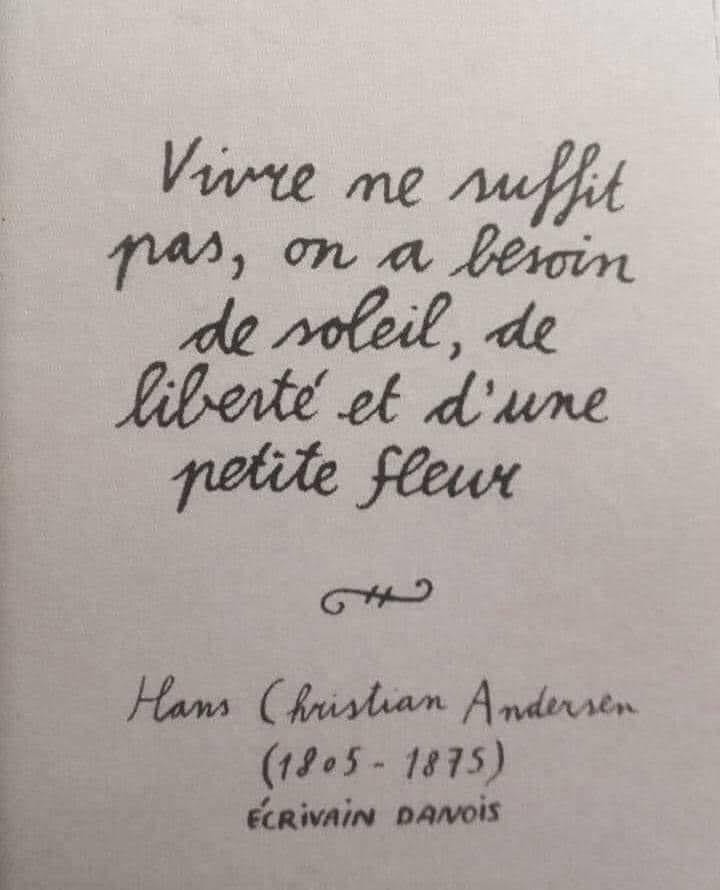 Vivre ne suffit
pas, on a besoin
de soleil, de
liberté et d'une
petite fleur
Hans Christian Andersen
(1805 - 1875)
ÉCRIVAIN DANOIS